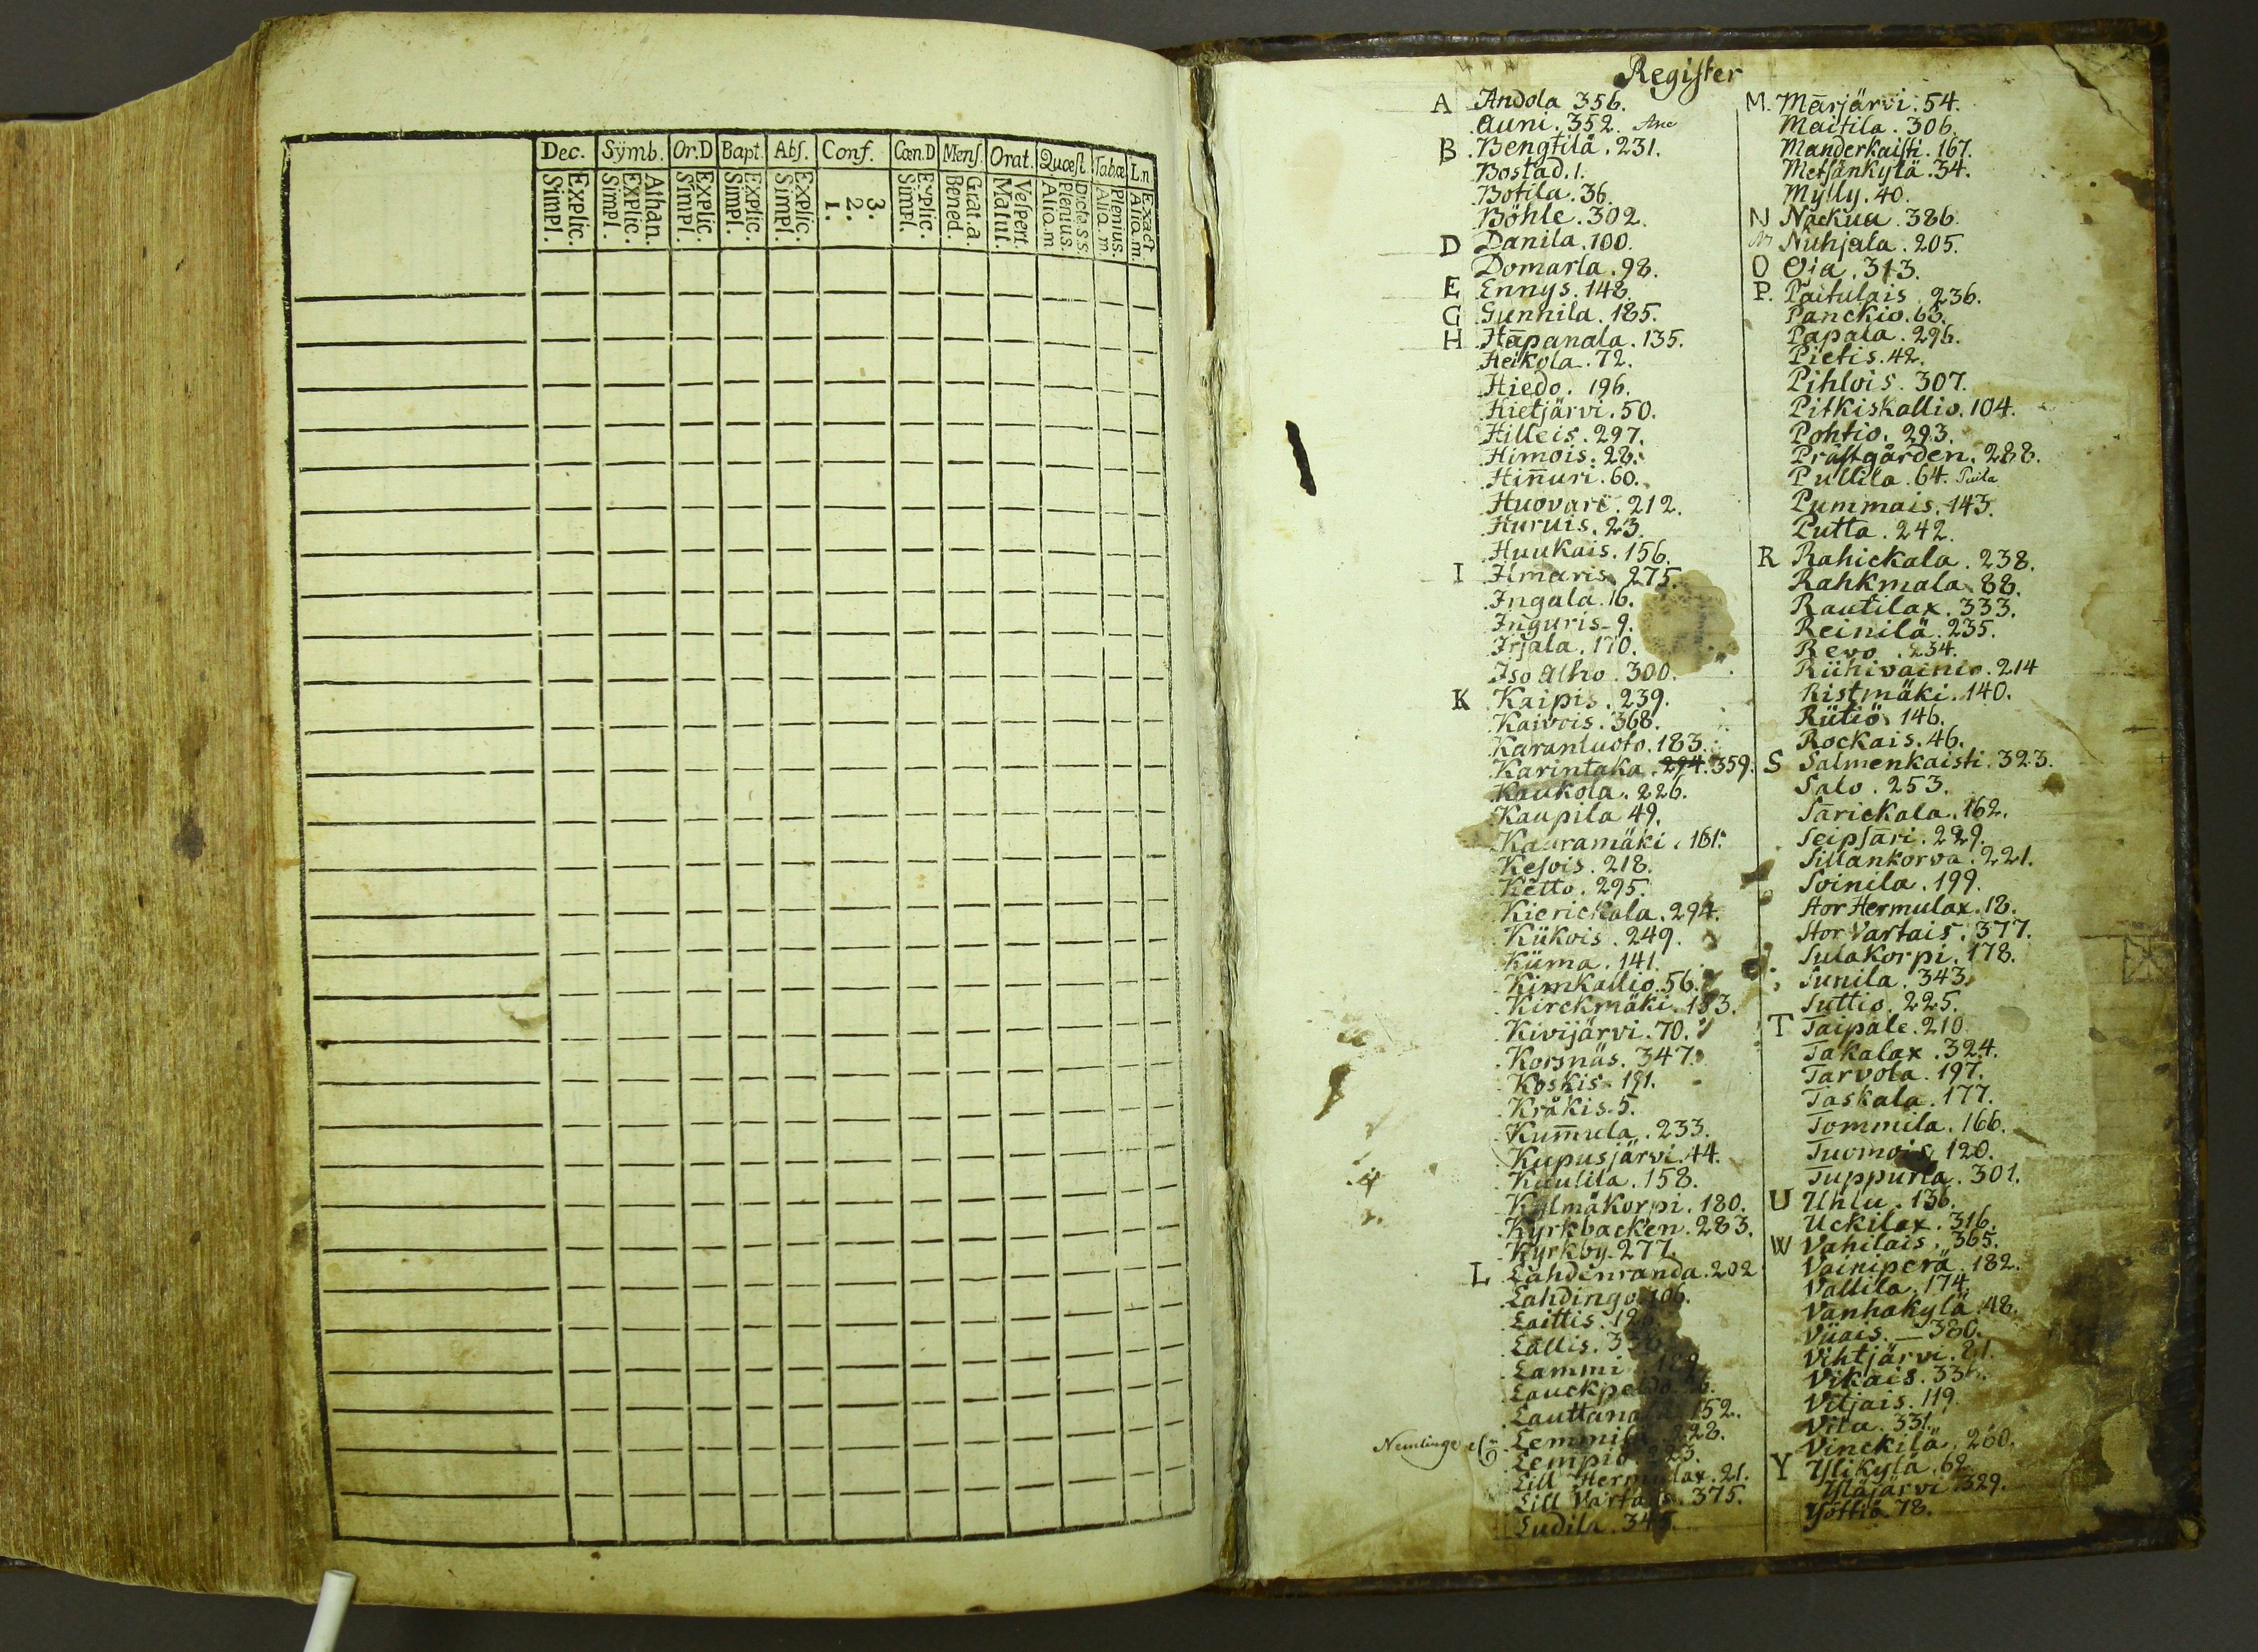 Dec. Sÿmb. Or.D Bapt. Abſ. Conf. Cœn.D Menſ. Orat. Quœſt Tabæ L.n
Explic. Simpl. Athan. Explic. Simpl. Explic. Simpl. Explic. Simpl. Explic. Simpl. 3. 2. 1. Explic. Simpl. Grat.a. Bened. Veſpert. Matut. Dicta.s.s. Plenius. Aliq.m. Plenius. Aliq.m Exact Aliq.m.
Regiſter
A Andola 356.
Auni. 352.
B Bengtilä. 231.
Bostad. 1.
Botila. 36.
Böhle. 302.
D Danila. 100.
Domarla. 98.
E Ennys. 148.
G Gunnila. 185.
H Hāpanala. 135.
Heikola. 72.
Hiedo. 196.
Hietjärvi. 50.
Hilleis. 297.
Himois. 28.
Hin̄uri. 60.
Huovari. 212.
Huruis. 23.
Huukais. 156.
I Ilmaris. 275.
Ingala. 16.
Inguris. 9.
Irjala. 170.
Iso Alho. 300.
K Kaipis. 239.
Kaivois. 368.
Karanluoto. 183.
Karintaka. 294. 359.
Kaukola. 226.
Kaupila 49.
Kauramäki. 161.
Keſois. 218.
Ketto. 295.
Kierickala. 294.
Kiikois. 249.
Kiima. 141.
Kimkallio. 56.
Kirckmäki. 183.
Kivijärvi. 70.
Korsnäs. 347.
Koskis. 191.
Kråkis. 5.
Kum̄ula. 233.
Kupusjärvi. 44.
Kuulila. 158.
Kylmäkorpi. 180.
Kyrkbacken. 283.
Kyrkby. 277.
L Lahdenranda. 202
Lahdingo. 106.
Laittis.
Lallis.
Lammi
Lauttana 152.
Nemlinge Lemmilä. 228.
Lempio.
Lill Hermulax. 21.
Lill Vartais. 375.
Ludila.
M. Mārjärvi. 54.
Maitila. 306.
Manderkaiſti. 167.
Metſänkylä. 34.
Mylly. 40.
N Näckua. 386.
Nuhjala. 205.
O Oia. 313.
P. Paitulais. 236.
Panckio. 63.
Papala. 296.
Pietis. 42.
Pihlois. 307.
Pitkiskallio. 104.
Pohtio. 293.
Präſtgården. 288.
Pullila. 64. Puila
Pummais. 143.
Putta. 242.
R Rahickala. 238.
Rahkmala. 88.
Rautilax. 333.
Reinilä. 235.
Revo. 234.
Riihivainio. 214
Ristmäki. 140.
Riitiö. 146.
Rockais. 46.
S Salmenkaisti. 323.
Salo. 253.
Sārickala. 162.
Seipſāri. 229.
Sillankorva. 221.
Soinila. 199.
Stor Hermulax. 18.
Stor Vartais. 377.
Sulakorpi. 178.
Sunila. 343.
Suttio. 225.
T Taipale. 210
Takalax. 324.
Tarvola. 197.
Taskala. 177.
Tommila. 166.
Tuomois. 120.
Tuppurla. 301.
U Uhlu. 136.
Uckilax. 316.
W Vahilais. 365.
Vainiperä. 182.
Vallila. 174.
Vanhakylä. 48.
Viiais. — 380.
Vihtjärvi. 81.
Vikais.
Viljais. 119.
Vila. 331.
Vinckilä. 260.
Y Ylikylä. 62.
Yläjärvi. 329.
Yöttiö. 78.